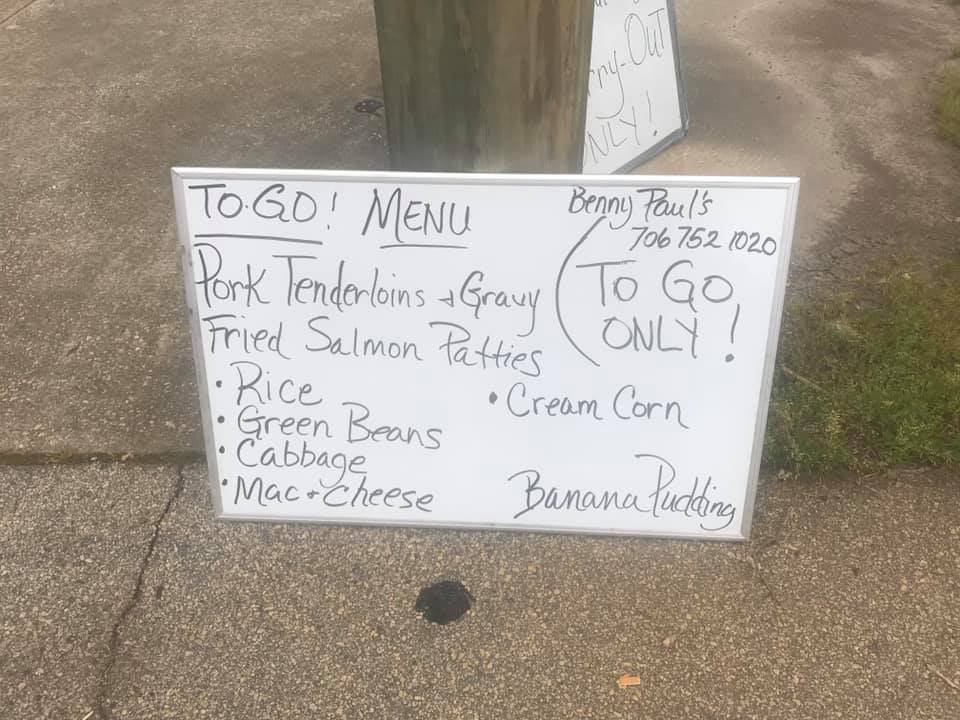 Carry-Out
ONLY!
TO-GO! MENU
Benny Paul's
706 752 1020
TO GO
ONLY!
Pork Tenderloins + Gravy
Fried Salmon Patties
• Rice
• Cream Corn
• Green Beans
• Cabbage
• Mac + Cheese
Banana Pudding